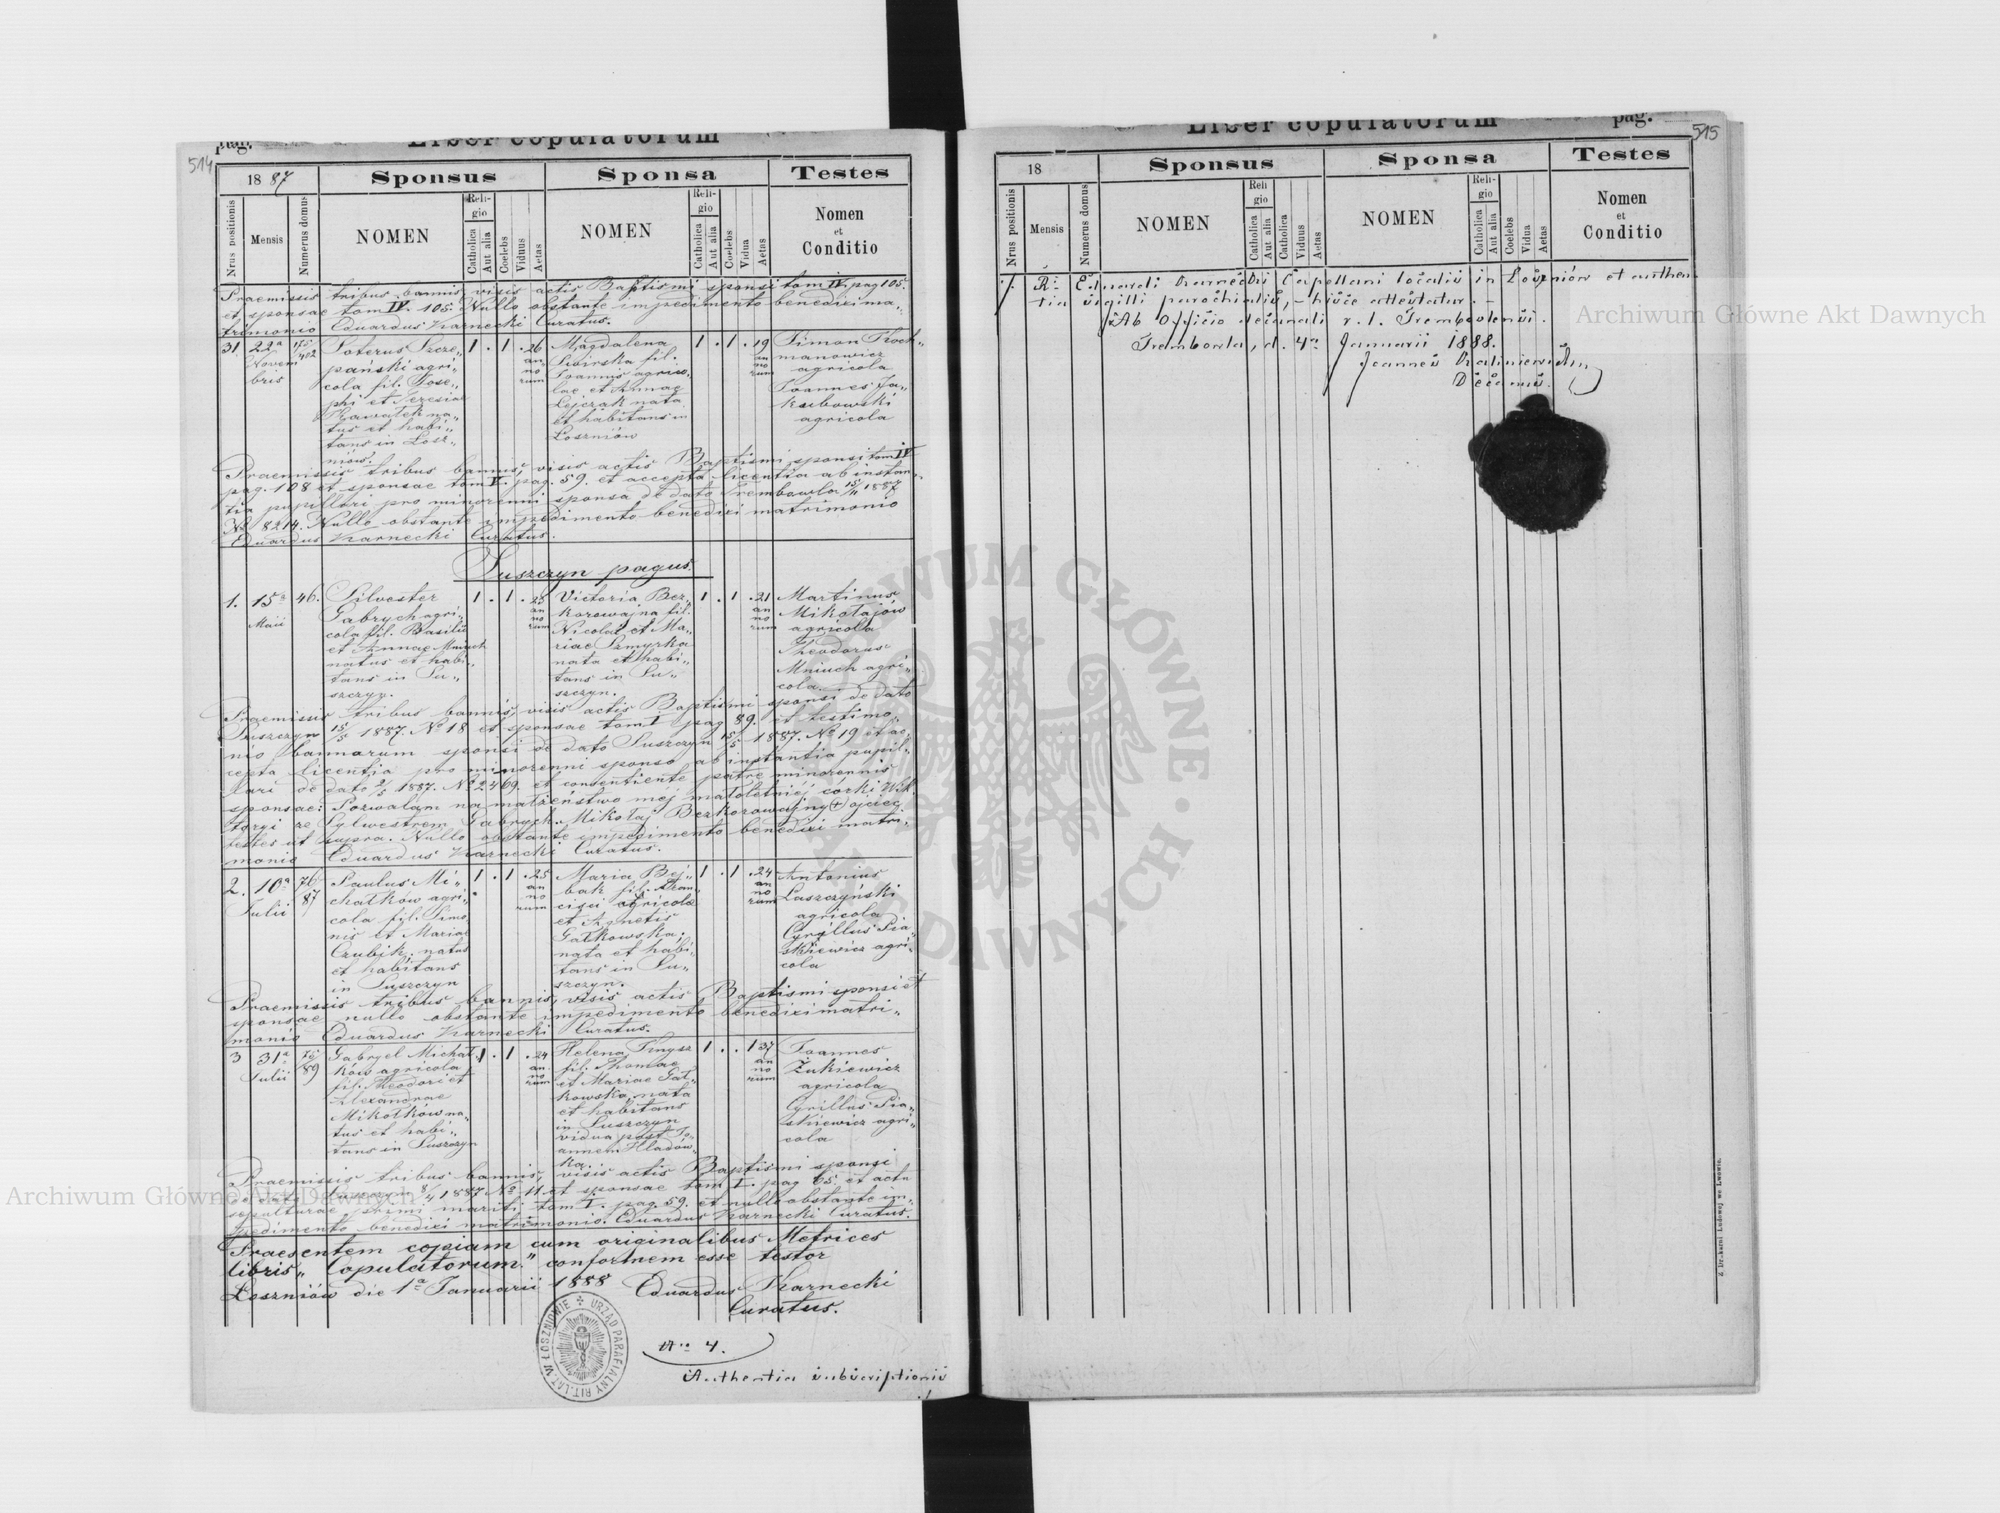 pag.
Liber copulatorum
514
18 87
Sponsus
Sponsa
Testes
Nrus positionis
Mensis
Numerus domus
NOMEN
Reli-
gio
Catholica
Aut alia
Coelebs
Viduus
Aetas
NOMEN
Reli-
gio
Catholica
Aut alia
Coelebs
Vidua
Aetas
Nomen
et
Conditio
Praemissis tribus bannis visis actis Baptismi sponsi tom IV. pag 105.
et sponsae tom IV. 105. Nullo obstante impedimento benedixi ma„
trimonio Eduardus Karnecki Curatus.
31. 22a Novem bris
Soterus Szcze„
pański agri„
cola fil. Jose„
phi et
Kawałek na„
tus et habi„
tans in Łosz„
niów.
1 . 1 . 26 an no rum
Magdalena
fil.
Joannis agrico„
lae et Annae
Lejczak nata
et habitans in
Łoszniów
1 . 1 . 19 an no rum
Simon Koch„
manowicz
agricola
Joannes Ja„
kubowski
agricola
Praemissis tribus bannis, visis actis Baptismi sponsi tom IV.
pag. 108 et sponsae tom V. pag. 59. et accepta licentia ab instan„
tia pupillari pro minorenni sponsa de dato Trembowla 15/11 1887
No 8214. Nullo obstante impedimento benedixi matrimonio
Eduardus Karnecki Curatus.
Suszczyn pagus.
1. 15a Maii 46.
Silvester
Gabrych agri„
cola fil. Basilii
et Annae Mniuch
natus et habi„
tans in Su„
szczyn.
1 . 1 . 23 an no rum
Victoria Bez„
korowajna fil.
Nicolai et Ma„
riae Szmyrka
nata et habi„
tans in Su„
szczyn.
1 . 1 . 21 an no rum
Martinus
Mikołajów
agricola
Theodorus
Mniuch agri„
cola.
Praemissis tribus bannis, visis actis Baptismi sponsi de dato
Suszczyn 15/5 1887. No 18 et sponsae tom I pag 89. et testimo„
nio bannarum sponsi de dato Suszczyn 15/5 1887. No 19 et ac„
cepta licentia pro minorenni sponso ab instantia pupil„
lari de dato 1887. No 2469. et consentiente patre minorennis
sponsae: Pozwalam na małżeństwo mej małoletniej córki Wik„
toryi ze Sylwestrem Gabrych. Mikołaj Bezkorowajny + ojciec
testes ut supra. Nullo obstante impedimento benedixi matri„
monio Eduardus Karnecki Curatus.
2. 10a Julii 76 87
Paulus Mi„
chałków agri„
cola fil. Simo„
nis et Mariae
Czubik. natus
et habitans
in Suszczyn
1 . 1 . 25 an no rum
Maria Bej„
bak fil. Fran„
cisci agricola
et Agnetis
Gałkowska.
nata et habi„
tans in Su„
szczyn.
1 . 1 . 24 an no rum
Antonius
Laszczyński
agricola
Cyrillus Pia„
skiewicz agri„
cola
Praemissis tribus bannis, visis actis Baptismi sponsi et
sponsae nullo obstante impedimento benedixi matri„
monio Eduardus Karnecki Curatus.
3 31a Julii 89
Gabryel Michał„
ków agricola
fil. Theodori et
Alexandrae
Mikołków na„
tus et habi„
tans in Suszczyn
1 . 1 . 24 an no rum
Helena Tmysz
fil. Thomae
et Mariae Gał„
kowska. nata
et habitans
in Suszczyn
vidua post Jo„
annem Hladów„
ka.
1 . . 1 37 an no rum
Joannes
Żukiewicz
agricola
Cyrillus Pia„
skiewicz agri„
cola
Praemissis tribus bannis, visis actis Baptismi sponsi
de dato Suszczyn 1887 No 11 et sponsae tom I. pag 65 et actu
sepulturae primi mariti tom I. pag. 59. et nullo obstante im„
pedimento benedixi matrimonio. Eduardus Karnecki Curatus.
Praesentem copiam cum originalibus Metrices
libris „Copulatorum" conformem esse testor
Łoszniów die 1a Januarii 1888 Eduardus Karnecki
Curatus.
URZĄD PARAFIALNY RIT. LAT. W ŁOSZNIOWIE
No 4.
Authentia subscriptionis
Liber copulatorum
pag.
515
18
Sponsus
Sponsa
Testes
Nrus positionis
Mensis
Numerus domus
NOMEN
Reli
gio
Catholica
Aut alia
Catholica
Viduus
Aetas
NOMEN
Reli-
gio
Catholica
Aut alia
Coelebs
Vidua
Aetas
Nomen
et
Conditio
R. Eduardi Karnecki Capellani localis in Łoszniów et authen
tia sigilli parochialis, – hisce attestatur. –
Ab Officio decanali r. l. Trembovlensi.
Trembowla, d. 4a Januarii 1888.
Joannes Kaliniewicz
Decanus.
Z Drukarni Ludowej we Lwowie.
Archiwum Główne Akt Dawnych
Archiwum Główne Akt Dawnych
ARCHIWUM GŁÓWNE AKT DAWNYCH